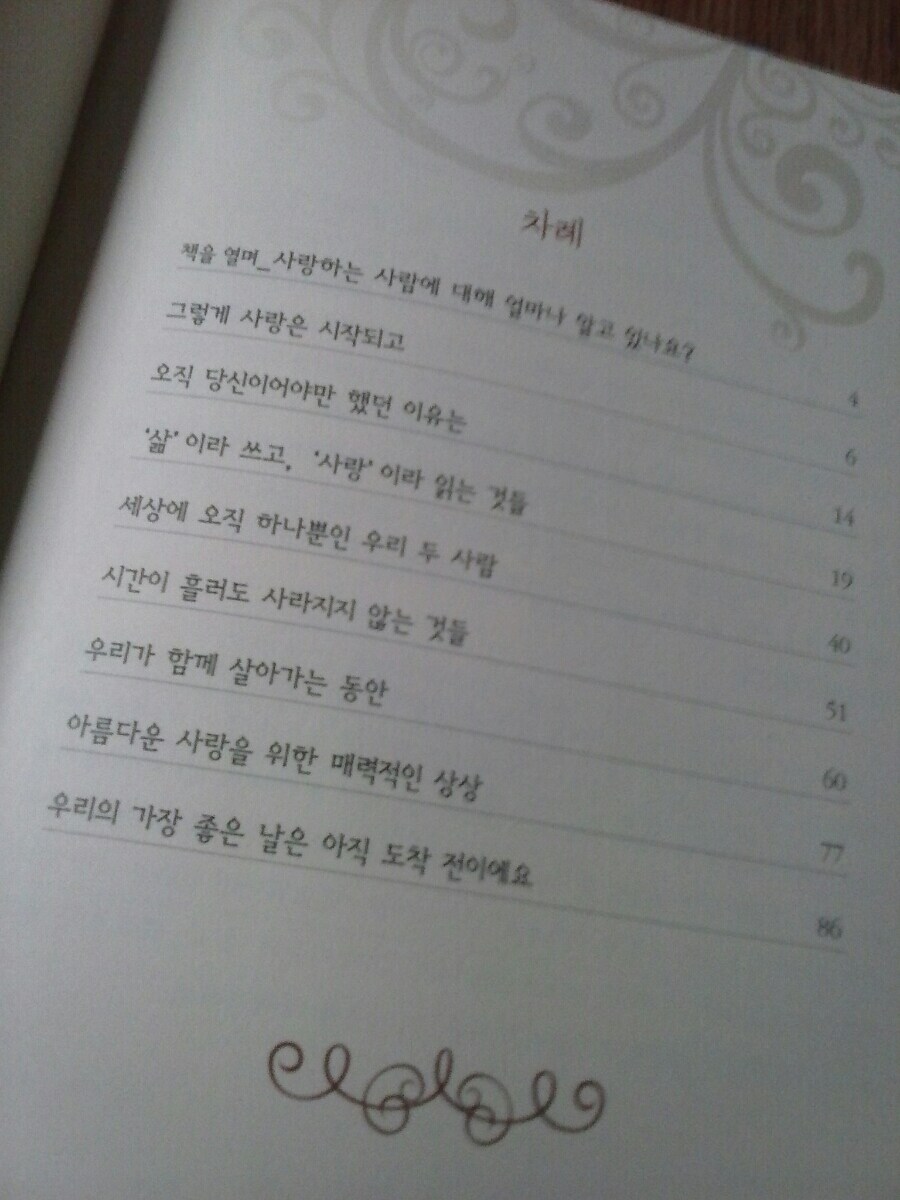 차례
책을 열며_사랑하는 사람에 대해 얼마나 알고 있나요? 4
그렇게 사랑은 시작되고 6
오직 당신이어야만 했던 이유는 14
‘삶’이라 쓰고, ‘사랑’이라 읽는 것들 19
세상에 오직 하나뿐인 우리 두 사람 40
시간이 흘러도 사라지지 않는 것들 51
우리가 함께 살아가는 동안 60
아름다운 사랑을 위한 매력적인 상상 77
우리의 가장 좋은 날은 아직 도착 전이에요 86